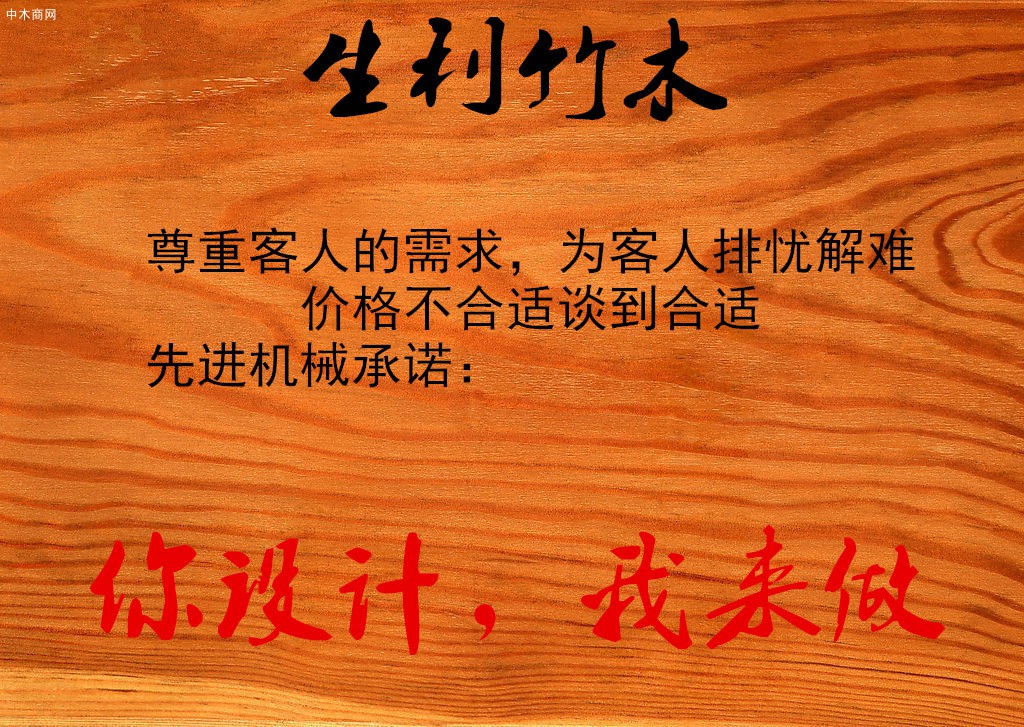 中木商网
生利竹木
尊重客人的需求，为客人排忧解难
价格不合适谈到合适
先进机械承诺：
你设计，我来做